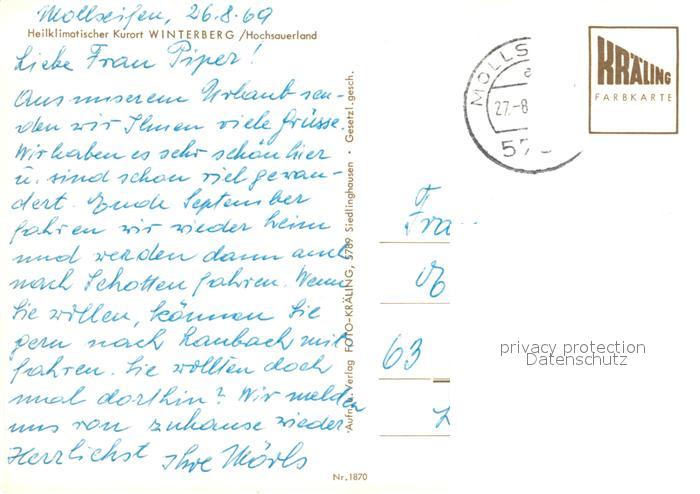 Mollseifen, 26.8.69
Heilklimatischer Kurort WINTERBERG /Hochsauerland
Liebe Frau Piper!
Aus unserem Urlaub sen-
den wir Ihnen viele Grüsse.
Wir haben es sehr schön hier
u. sind schon viel gewan-
dert. Ende September
fahren wir wieder heim
und werden dann auch
nach Schotten fahren. Wenn
Sie wollen, können Sie
gern nach Laubach mit
fahren. Sie wollten doch
mal dorthin? Wir melden
uns von zuhause wieder
Herzlichst Ihre Mörls
Aufn. u. Verlag FOTO-KRÄLING, 5789 Siedlinghausen · Gesetzl. gesch.
Nr. 1870
MOLLS
27.-8
57
KRÄLING
FARBKARTE
Fra
63
privacy protection
Datenschutz